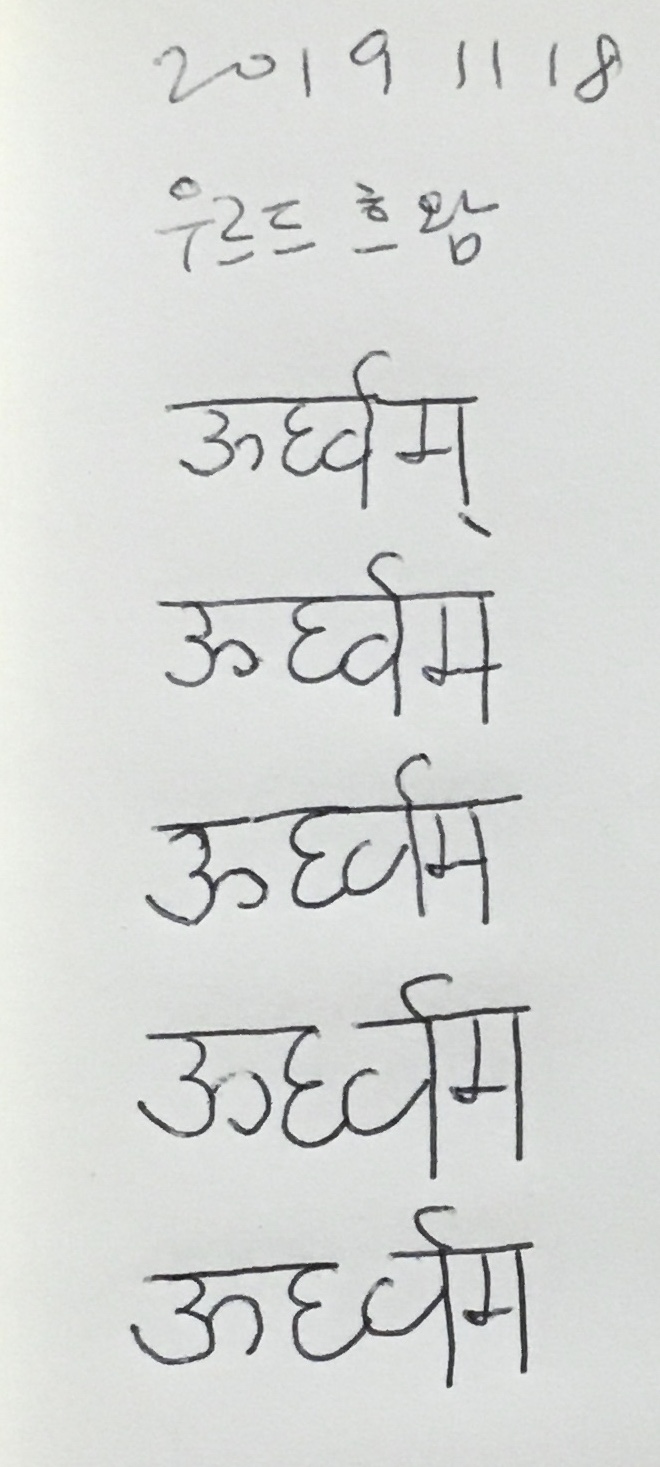 2019 11 18
우르드흐왐
ऊर्ध्वम्
ऊर्ध्वम
ऊर्ध्वम
ऊर्ध्वम
ऊर्ध्वम